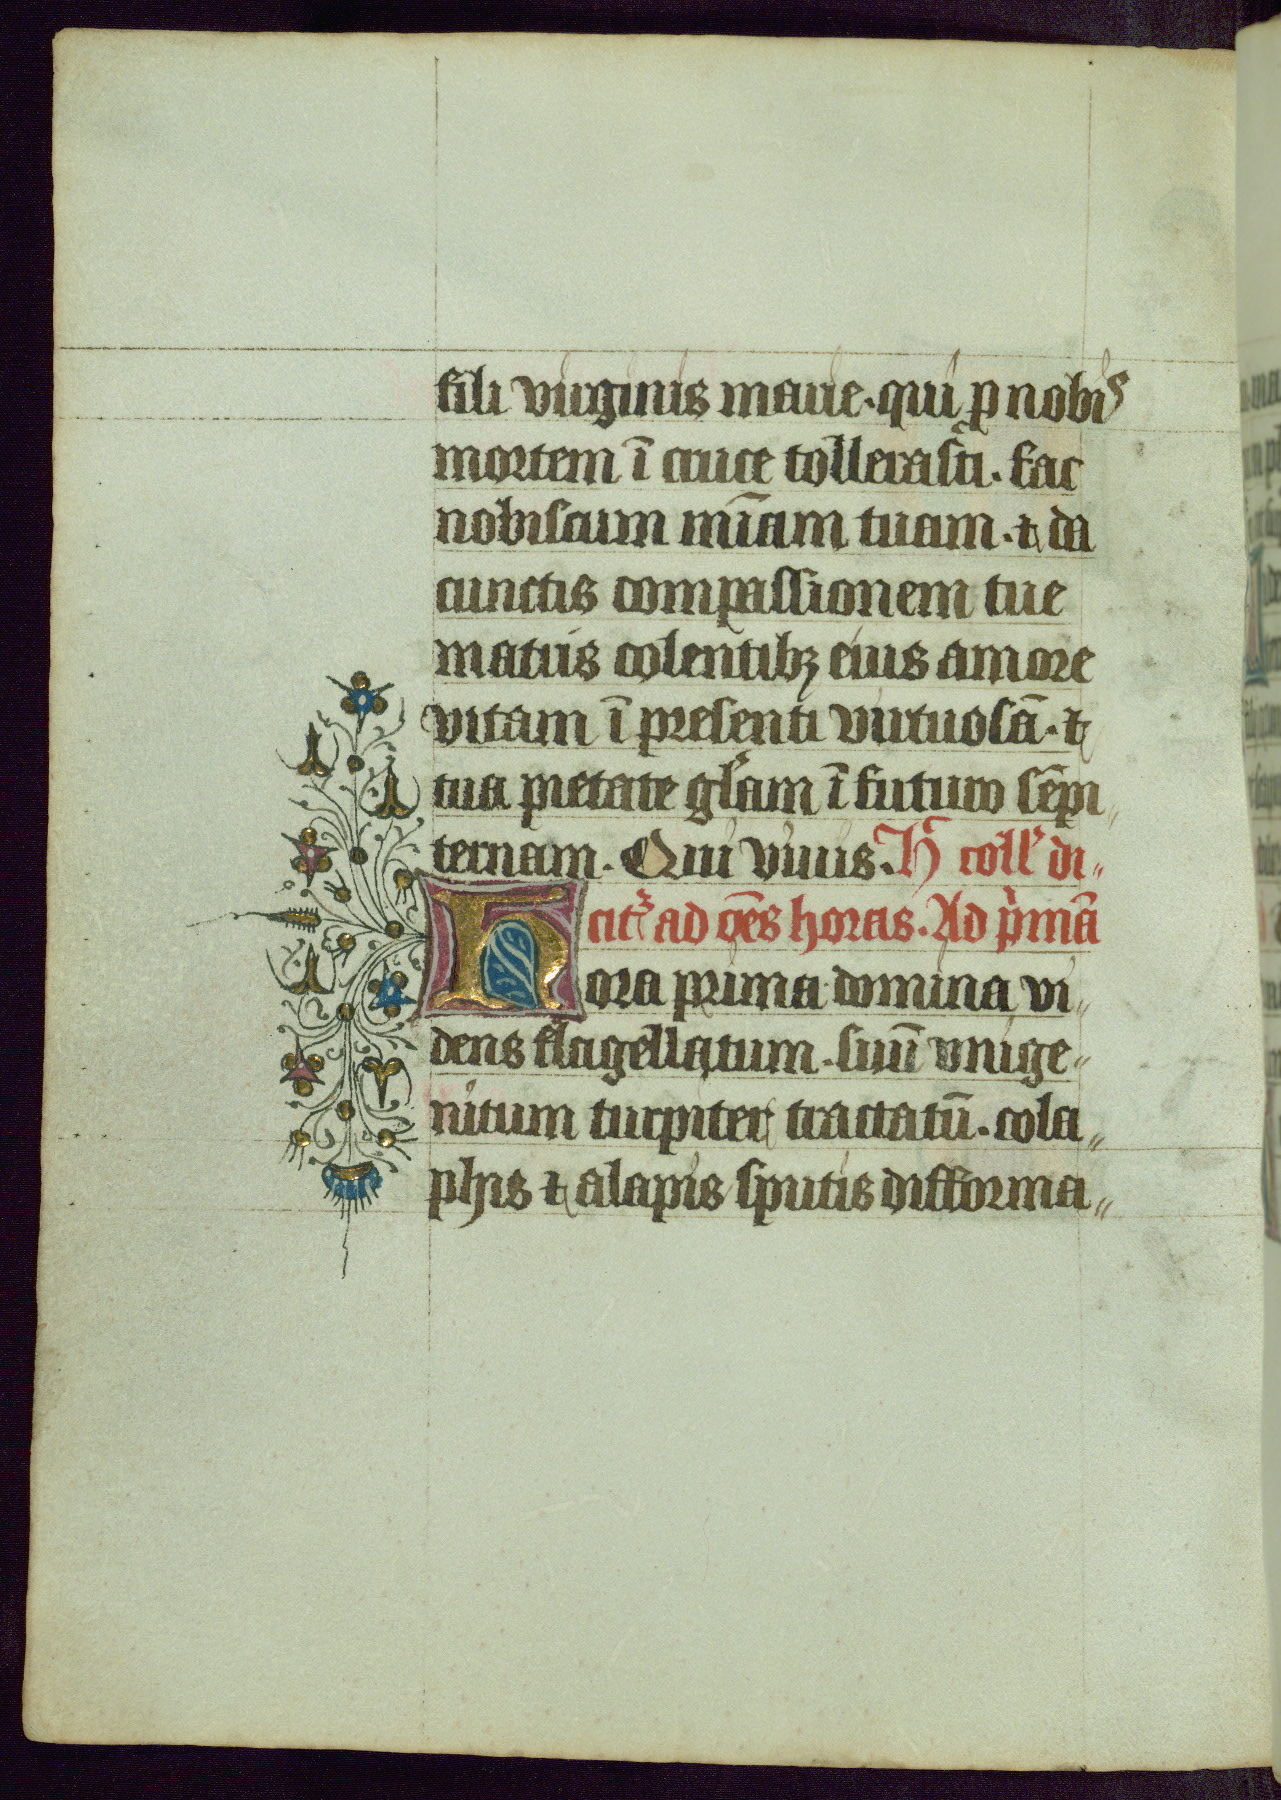 fili virginis marie. qui p nobis
mortem ī cruce tollerasti. fac
nobiscum mīam tuam. ⁊ da
cunctis compassionem tue
matris colentibꝫ eius amore
vitam ī presenti virtuosā. ⁊
tua pietate glīam ī futuro sēpi
ternam. Qui viuis. H̄ coll' di-
cit᷑ ad oēs horas. Ad p̍mā
Hora prima domina vi-
dens flagellatum. suū vnige-
nitum turpiter tractatū. cola-
phis ⁊ alapis sputis difforma-